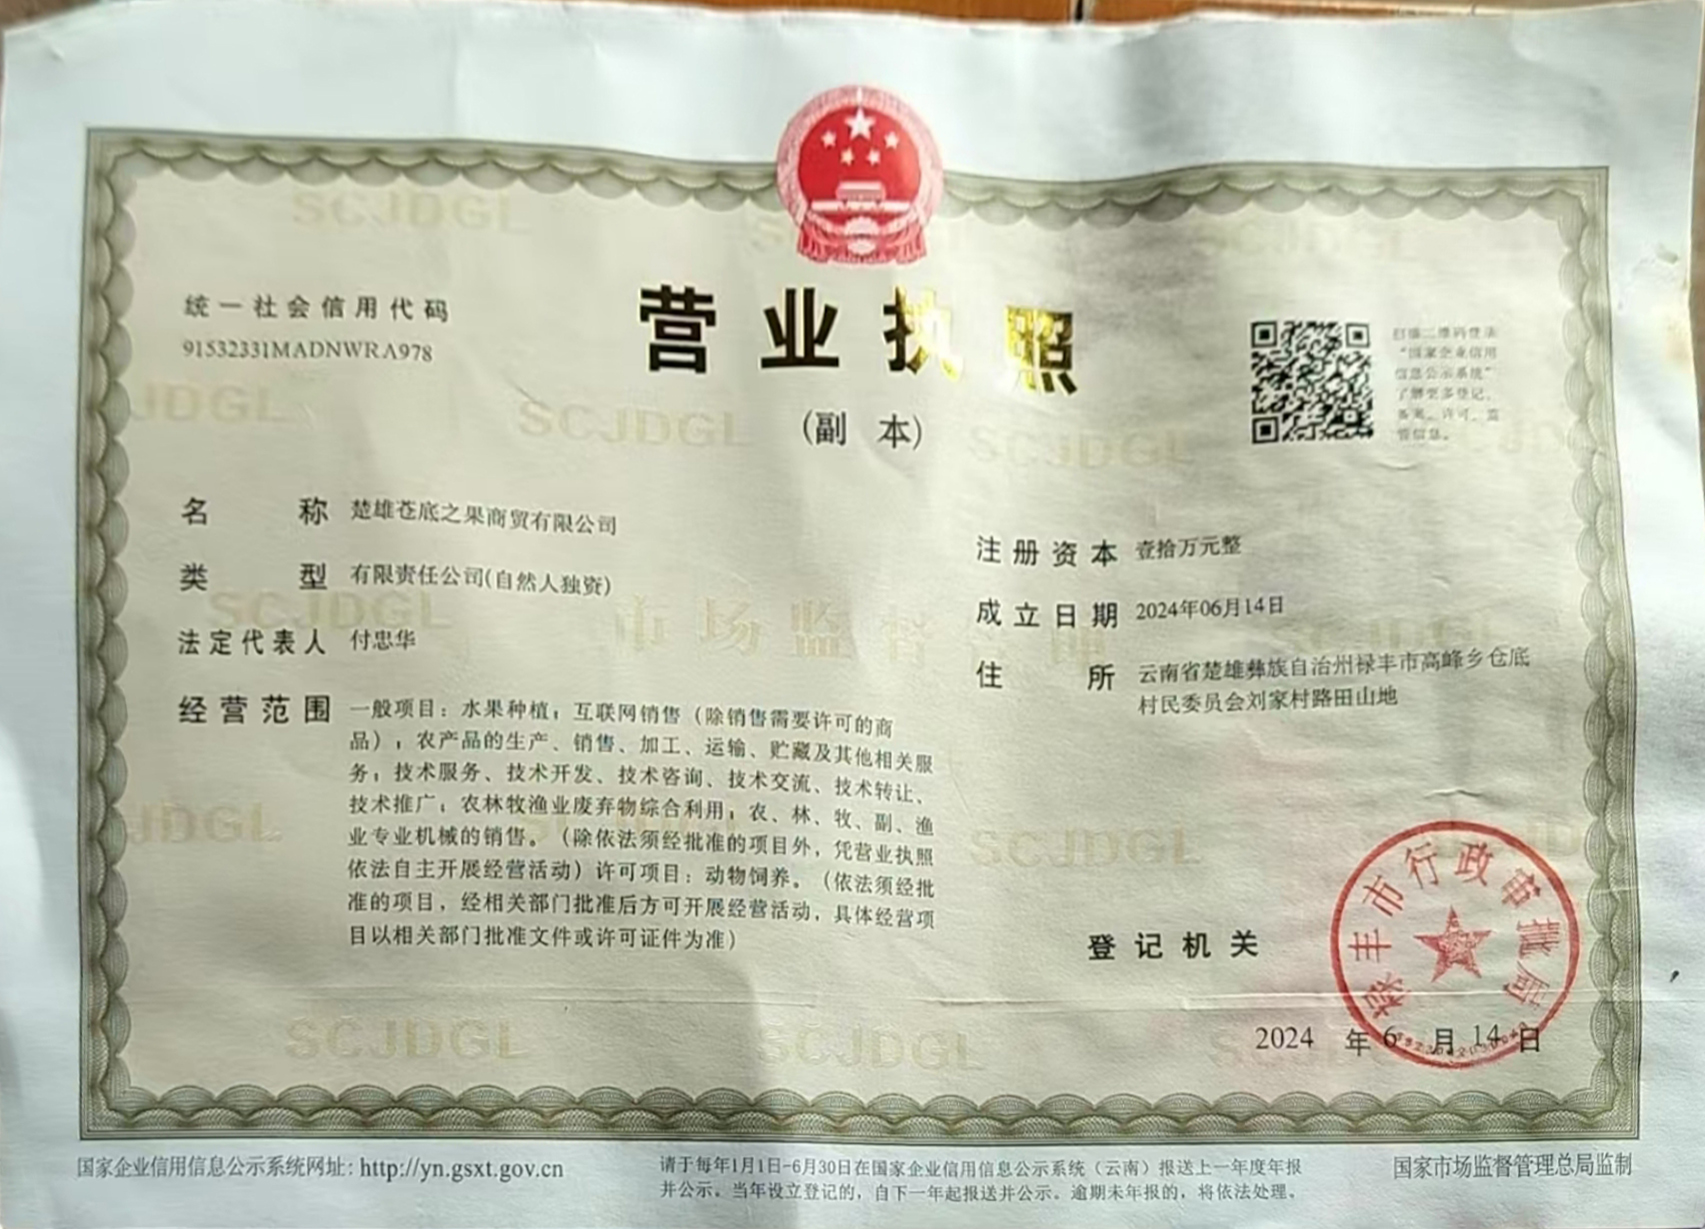 统一社会信用代码
91532331MADNWRA978
营业执照
(副 本)
扫描二维码登录
“国家企业信用
信息公示系统”
了解更多登记、
备案、许可、监
管信息。
名称 楚雄苍底之果商贸有限公司
类型 有限责任公司(自然人独资)
法定代表人 付忠华
经营范围 一般项目：水果种植；互联网销售（除销售需要许可的商
品）；农产品的生产、销售、加工、运输、贮藏及其他相关服
务；技术服务、技术开发、技术咨询、技术交流、技术转让、
技术推广；农林牧渔业废弃物综合利用；农、林、牧、副、渔
业专业机械的销售。（除依法须经批准的项目外，凭营业执照
依法自主开展经营活动）许可项目：动物饲养。（依法须经批
准的项目，经相关部门批准后方可开展经营活动，具体经营项
目以相关部门批准文件或许可证件为准）
注册资本 壹拾万元整
成立日期 2024年06月14日
住所 云南省楚雄彝族自治州禄丰市高峰乡仓底
村民委员会刘家村路田山地
登记机关
禄丰市行政审批局
2024 年 6 月 14 日
国家企业信用信息公示系统网址: http://yn.gsxt.gov.cn
请于每年1月1日-6月30日在国家企业信用信息公示系统（云南）报送上一年度年报
并公示。当年设立登记的，自下一年起报送并公示。逾期未年报的，将依法处理。
国家市场监督管理总局监制